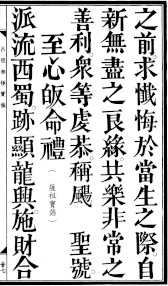 之前求懺悔於當生之際自
新無盡之良緣共樂非常之
善利眾等虔恭稱颺　聖號
至心皈命禮
（羅祖寶誥）
派流西蜀跡顯龍興施財合